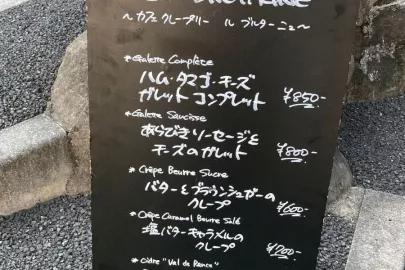 〜カフェ クレープリー ル ブルターニュ〜
* Galette Complète
ハム・タマゴ・チーズ
ガレット コンプレット ¥850-
* Galette Saucisse
あらびきソーセージと
チーズのガレット ¥800-
* Crêpe Beurre Sucre
バターとブラウンシュガーの
クレープ ¥600-
* Crêpe Caramel Beurre Salé
塩バターキャラメルの
クレープ
* Cidre "Val de Rance"